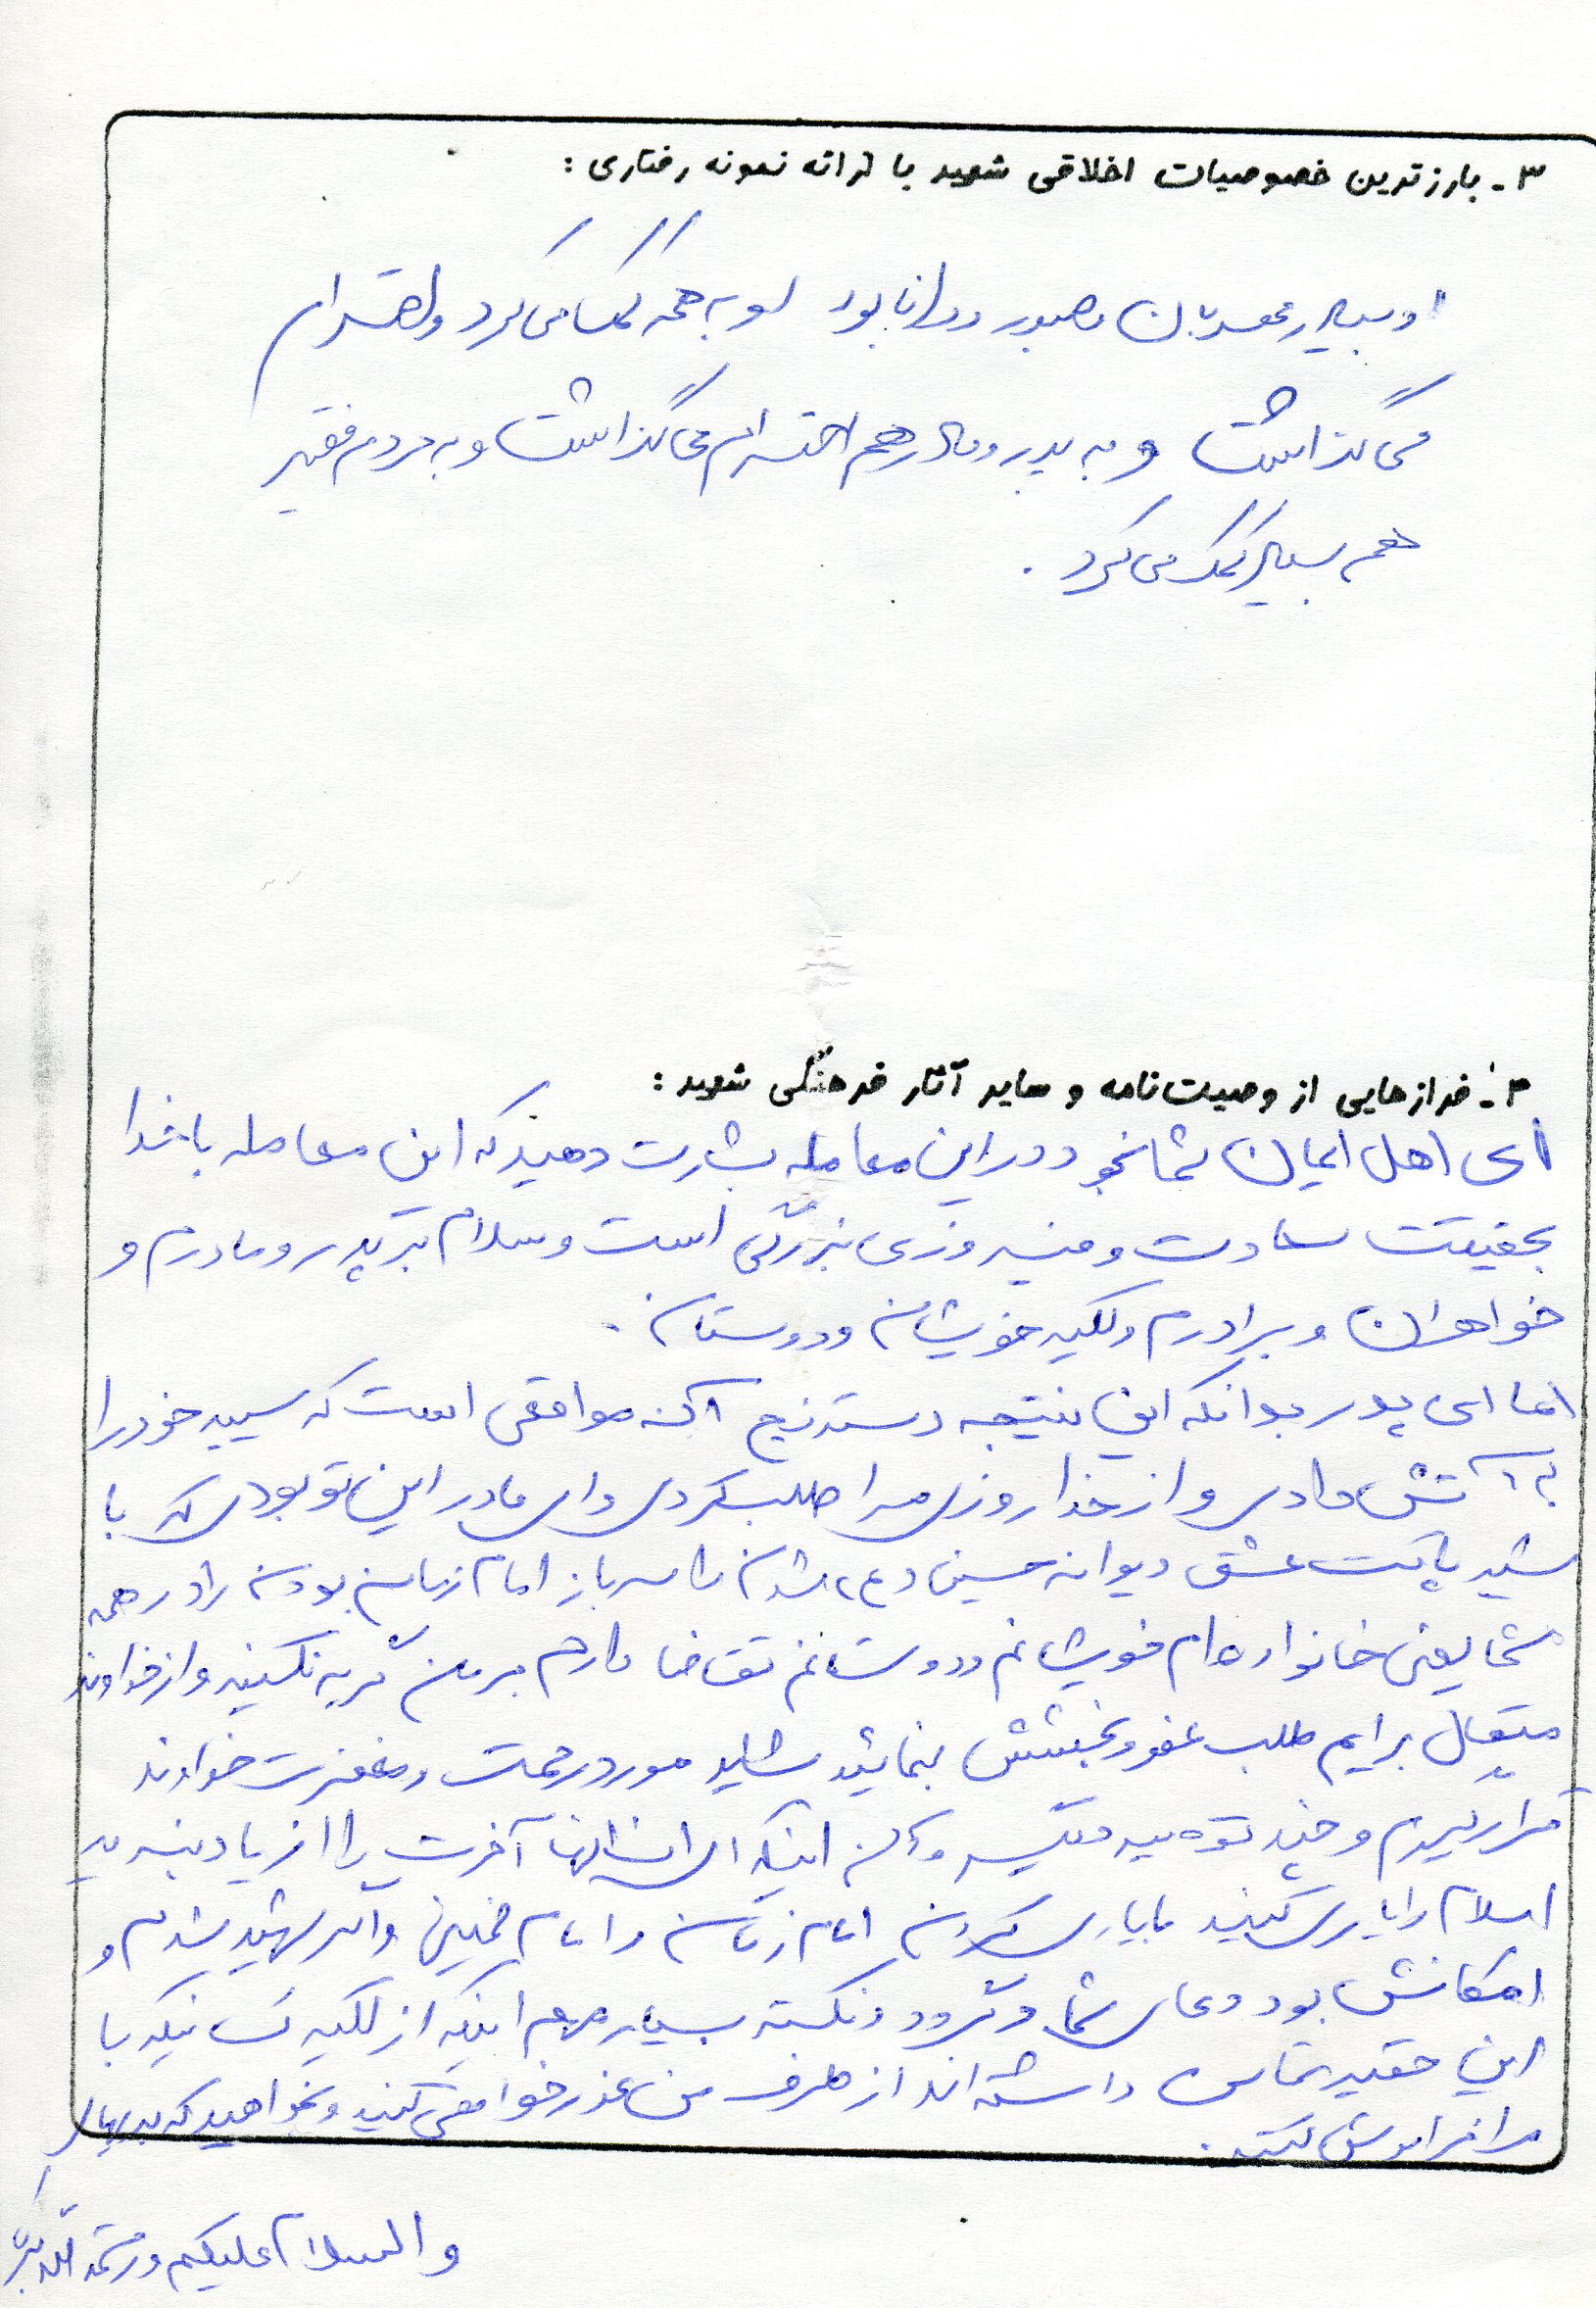 ۳- بارزترین خصوصیات اخلاقی شهید با ارائه نمونه رفتاری :
او بسیار مهربان صبور و دانا بود او به همه کمک می کرد و احترام
می گذاشت و به پدر و مادر هم احترام می گذاشت و به مردم فقیر
هم بسیار کمک می کرد .
۴- فرازهایی از وصیت نامه و سایر آثار فرهنگی شهید :
ای اهل ایمان شما بخود در این معامله بشارت دهید که این معامله با خدا
بحقیقت سعادت و فیروزی بزرگی است و سلام بر پدر و مادرم و
خواهران و برادرم و کلیه خویشان و دوستان .
اما ای پدر بدانکه این نتیجه دسترنج آن موافقی است که سینه خود را
به آتش دادی و از خدا روزی مرا طلب کردی و ای مادر این تو بودی که با
شیر پاکت عشق دیوانه حسین (ع) شدن را سرباز امام زمان بودن را در همه
شما یعنی خانواده ام خویشانم و دوستانم تقاضا دارم بر من گریه نکنید و از خداوند
متعال برایم طلب عفو و بخشش بنمائید شاید مورد رحمت و مغفرت خداوند
قرار گیرم و چند توصیه دیگر اینکه ای انسانها آخرت را از یاد نبرید
اسلام را یاری کنید با یاری کردن امام زمان و امام خمینی و اگر شهید شدم و
امکانش بود دعای شما و نکته بسیار مهم اینکه از کلیه کسانیکه با
این حقیر تماس داشته اند از طرف من عذر خواهی کنید و بخواهید که بدیهای
مرا فراموش کنند .
والسلام علیکم و رحمة الله و برکاته